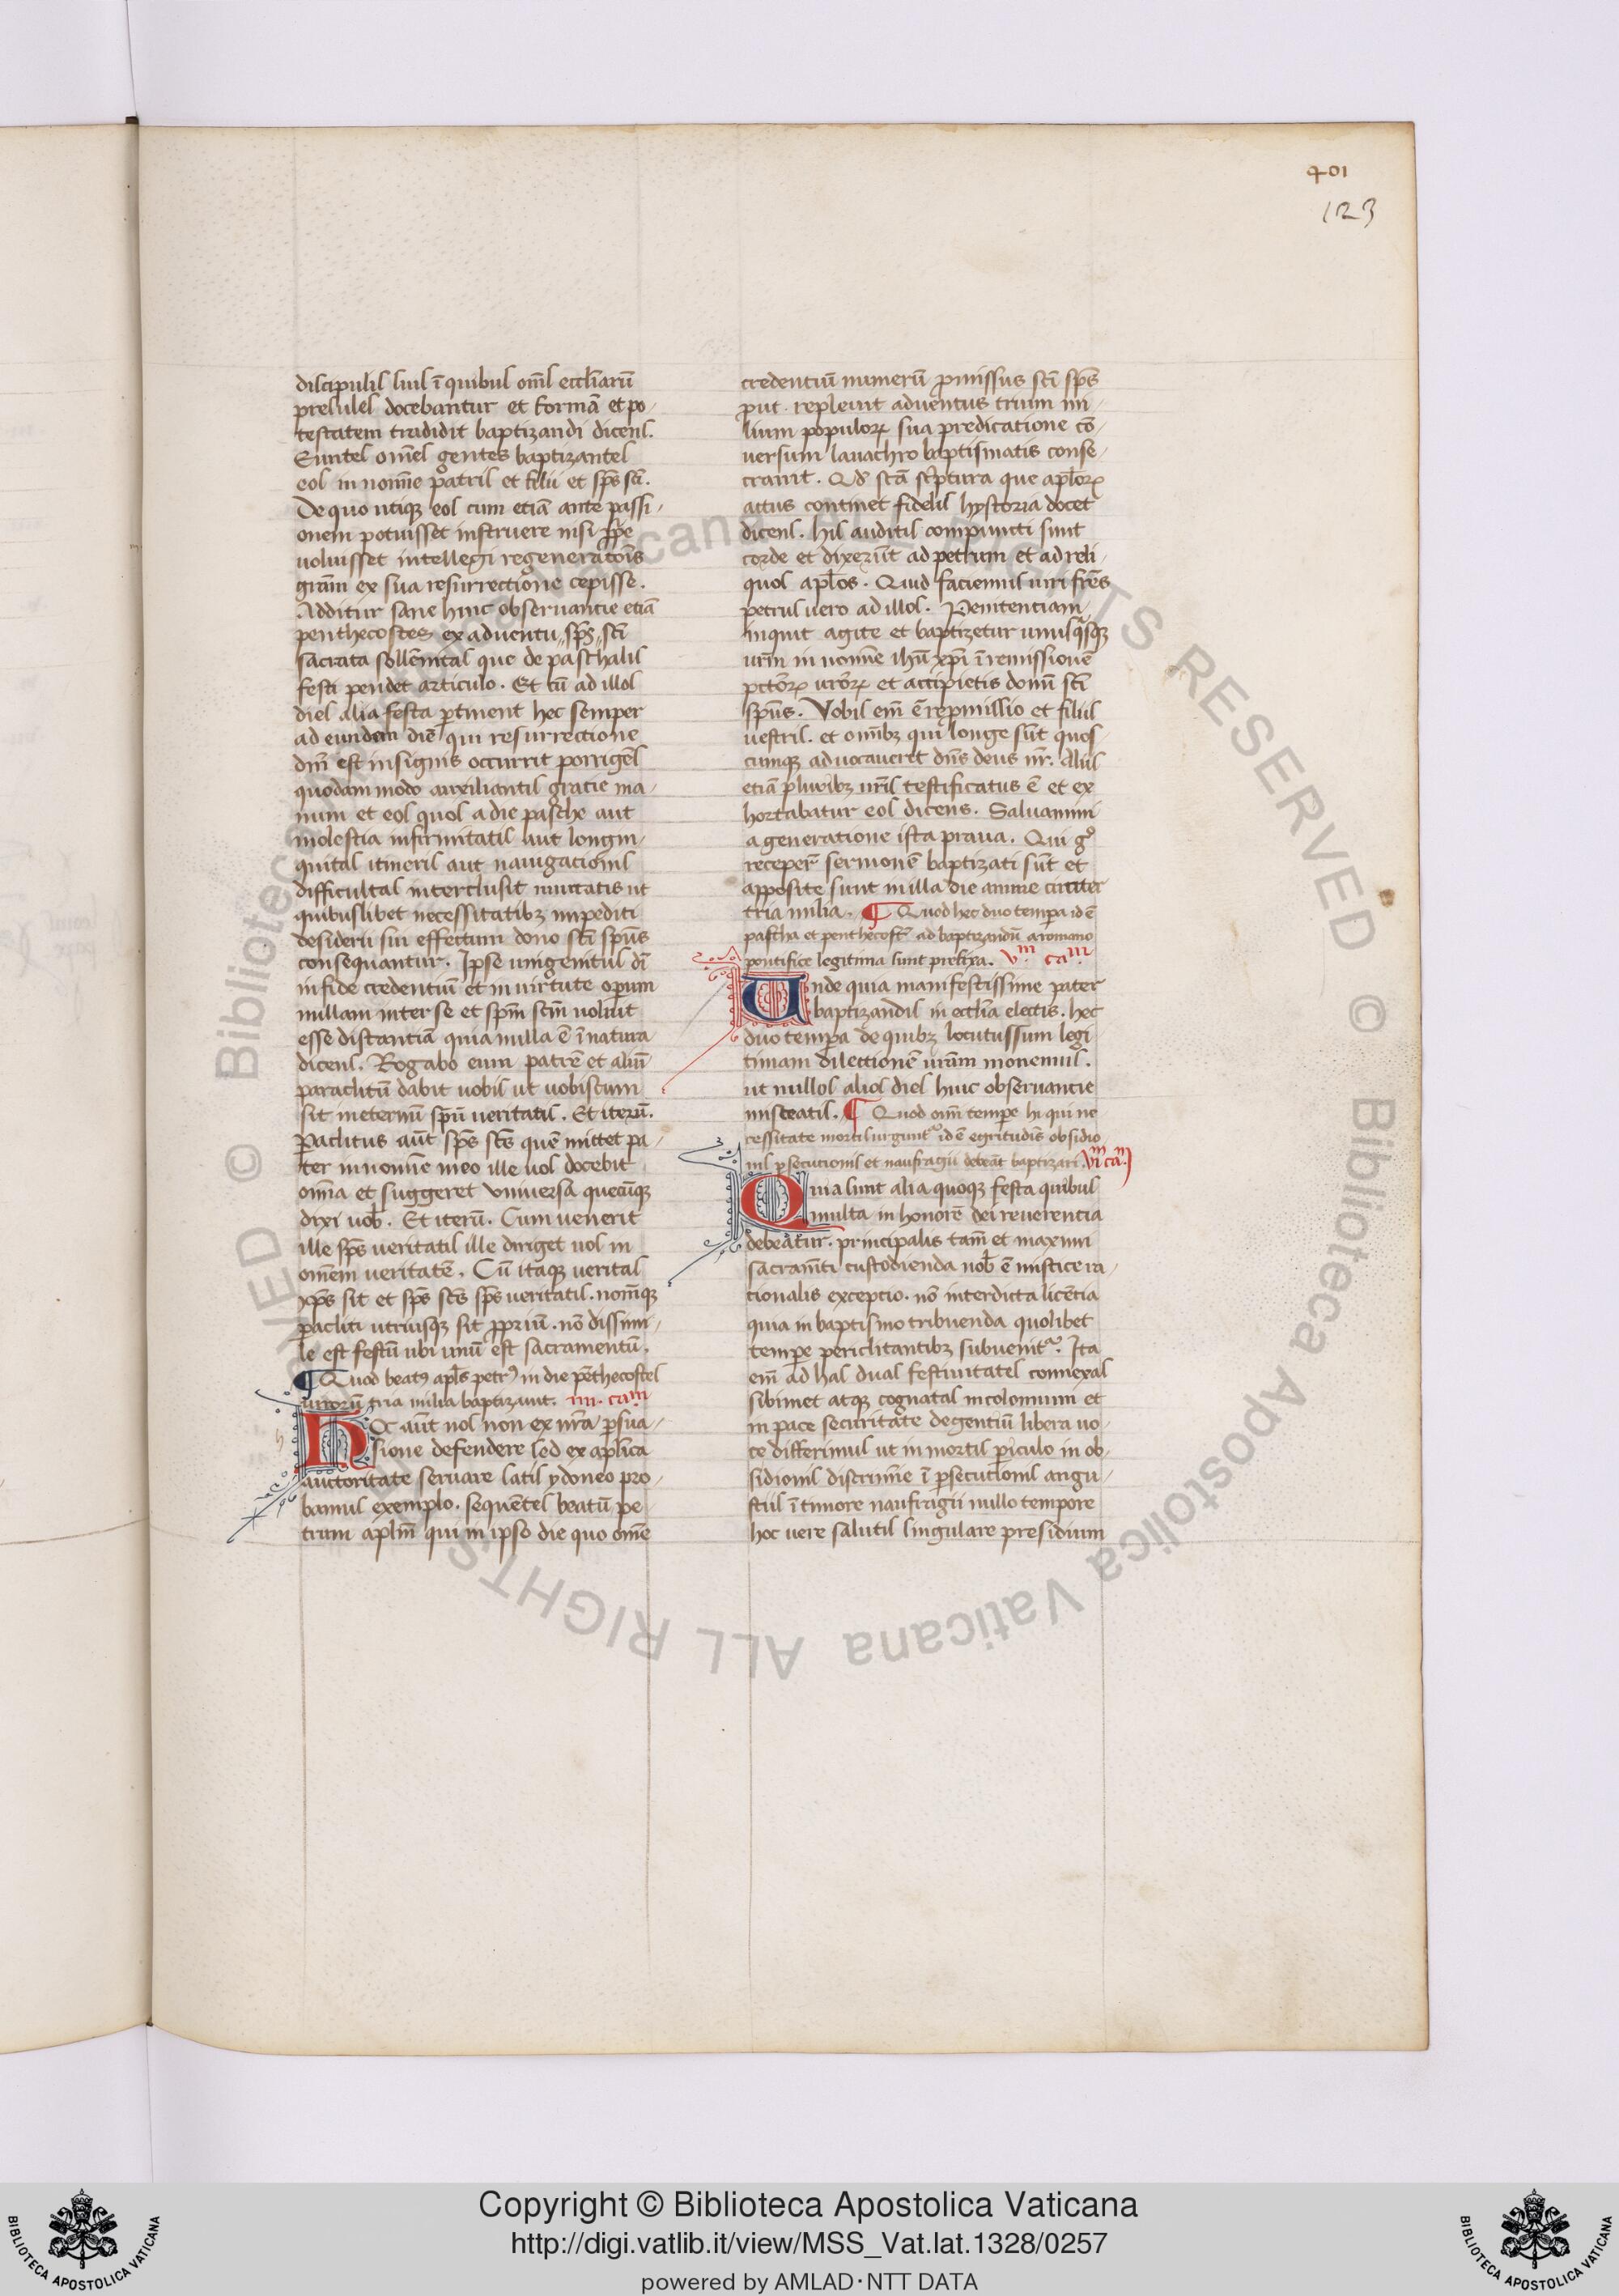 401
123
discipulis suis ī quibus om̄s eccl̄iarū
presules docebantur et formā et po-
testatem tradidit baptizandi dicens.
Euntes om̄es gentes baptizantes
eos in nomīe patris et filii et sp̄s sc̄i.
De quo utiqꝫ eos cum etiā ante passi-
onem potuisset instruere nisi ꝓpe
voluisset intellegi regeneratōis
gr̄am ex sua resurrectione cepisse.
Additur sane huic obseruantie etiā
penthecostes ex aduentu sp̄s sc̄i
sacrata sollēnitas que de paschalis
festi pendet articulo. Et cū ad illos
dies alia festa ꝑtinent hec semper
ad eundem diē qui resurrectione
dn̄i est insignis occurrit porrigēs
quodam modo auxiliantis gratie ma-
num et eos quos a die pasche aut
molestia infirmitatis aut longin-
quitas itineris aut nauigationis
difficultas interclusit inuitatis ut
quibuslibet necessitatibꝫ impediti
desiderii sui effectum dono sc̄i sp̄us
consequantur. Ipse unigenitus dī
in fide credentiū et in virtute oꝑum
nullam inter se et sp̄m sc̄m voluit
esse distantiā quia nulla ē ī natura
dicens. Rogabo eum patrē et aliū
paraclitū dabit uobis ut uobiscum
sit ineternū sp̄ū ueritatis. Et iterū.
Ꝑaclitus aūt sp̄s sc̄s quē mittet pa-
ter in nomīe meo ille uos docebit
om̄ia et suggeret vniuersa quecūqꝫ
dixi uob̄. Et iterū. Cum uenerit
ille sp̄s ueritatis ille diriget uos in
om̄em ueritatē. Cū itaqꝫ ueritas
xp̄s sit et sp̄s sc̄s sp̄s ueritatis. nom̄qꝫ
ꝑacliti utriusqꝫ sit ꝓpriū. nō dissimi-
le est festū ubi unū est sacramentū.
¶ Quod beatꝰ apl̄s petrꝰ in die pēthecostes
uirorū tria milia baptizauit. iiii. ca.m
Hoc aūt nos non ex nr̄a ꝑsua-
sione defendere sed ex apl̄ica
auctoritate seruare satis ydoneo pro-
bamus exemplo. sequētes beatū pe
trum apl̄m qui in ipso die quo om̄e
credentiū numerū ꝓmissus sc̄i sp̄s
ꝓut repleuit aduentus trium mi-
lium populorꝝ sua predicatione cō-
uersum lauachro baptismatis conse-
crauit. Qd̄ scā sc̄ptura que apl̄orꝝ
actus continet fidelis hystoria docet
dicens. His auditis compuncti sunt
corde et dixerūt ad petrum et ad reli-
quos apl̄os. Quid faciemus uiri fr̄es
petrus uero ad illos. Penitentiam
inquit agite et baptizetur unusq̄sqꝫ
ur̄m in nomīe ihū xp̄i ī remissionē
pctōrꝝ ur̄orꝝ et accipietis donū sc̄i
sp̄us. Vobis em̄ ē repmissio et filiis
uestris. et om̄ibꝫ qui longe sūt quos-
cumqꝫ aduocauerit dn̄s deus nr̄. Aliis
etiā pluribꝫ ur̄is testificatus ē et ex
hortabatur eos dicens. Saluamini
a generatione ista praua. Qui gͦ
receper̄ sermonē baptizati sūt et
apposite sunt in illa die anime circiter
tria milia. ¶ Quod hec duo tempa id ē
pascha et penthecost̄ ad baptizandū a romano
pontifice legitima sunt prefixa. v.m ca.m
Unde quia manifestissime patet
baptizandis in eccl̄ia electis. hec
duo tempa de quibꝫ locutussum legi
timam dilectionē ur̄am monemus.
ut nullos alios dies huic obseruantie
misceatis. ¶ Quod om̄i tempe hi qui ne
cessitate mortis urguntᷣ id ē egritudīs obsidio
nis ꝑsecutionis et naufragii debeāt baptizari. vi.m ca.m
Quia sunt alia quoqꝫ festa quibus
multa in honorē dei reuerentia
debeatur. principalis tam̄ et maximi
sacram̄ti custodienda nob̄ ē mistice ra-
tionalis exceptio. nō interdicta licētia
quia in baptismo tribuenda quolibet
tempe periclitantibꝫ subuenitᷣ. Ita
em̄ ad has duas festiuitates connexas
sibimet atqꝫ cognatas incolomium et
in pace securitate degentiū libera uo-
ce differimus ut in mortis ꝑiculo in ob-
sidionis discrimīe ī ꝑsecutionis angu-
stiis ī timore naufragii nullo tempore
hoc uere salutis singulare presidium
Copyright © Biblioteca Apostolica Vaticana
http://digi.vatlib.it/view/MSS_Vat.lat.1328/0257
powered by AMLAD·NTT DATA